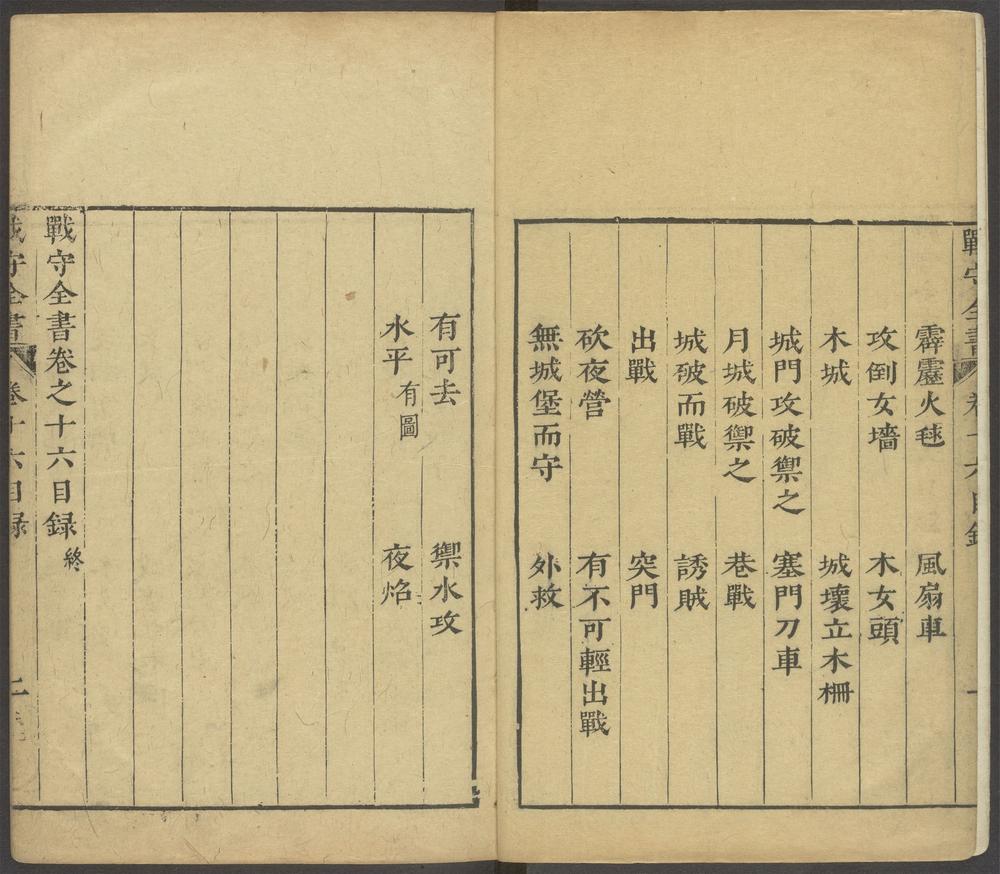 戰守全書 卷十六目錄 一
霹靂火毬 風扇車
攻倒女墻 木女頭
木城 城壞立木柵
城門攻破禦之 塞門刀車
月城破禦之 巷戰
城破而戰 誘賊
出戰 突門
砍夜營 有不可輕出戰
無城堡而守 外救
有可去 禦水攻
水平有圖 夜焰
戰守全書卷之十六目録終
戰守全書 卷十六目录